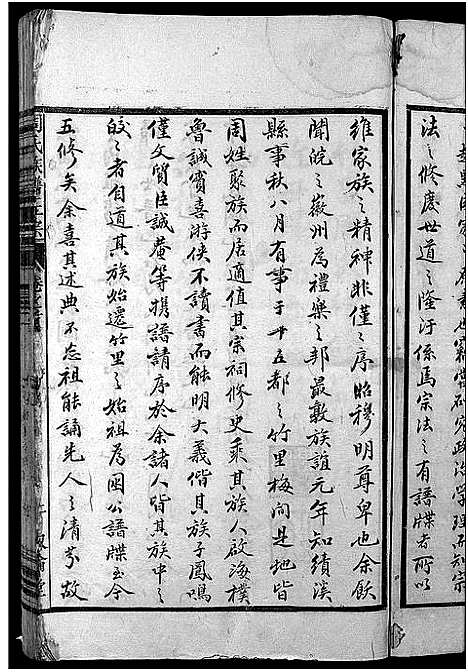 法之修廢世道之隆汙係焉宗法之有譜牒者所以
維家族之精神非僅之序昭穆明尊卑也余飫
聞皖之徽州為禮樂之邦最敦族誼元年知績溪
縣事秋八月有事于十五都之竹里梅間是地皆
周姓聚族而居適值其宗祠修之史乘其族人啟海樸
魯誠實喜游俠不讀書而能明大義偕其族子鳳鳴
僅文質臣誠菴等携譜請序於余諸人皆其族中之
皎之者自道其族始遷竹里之始祖為因公譜牒至今
五修矣余喜其述典不忘祖能誦先人之清芬故
周氏族譜正宗